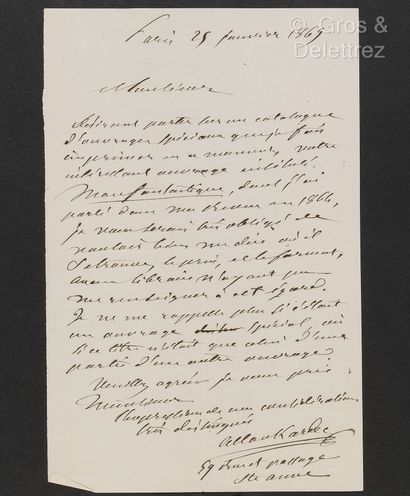 © Gros &
Delettrez
Paris 25 janvier 1869
Monsieur
Désirant porter sur un catalogue
d'ouvrages spéciaux que je fais
imprimer en ce moment, votre
intéressant ouvrage intitulé,
Mars fantastique, dont j'ai
parlé dans ma revue en 1866,
Je vous serais très obligé de
vouloir bien me dire où il
se trouve, le prix, et le format,
aucun libraire n'ayant pu
me renseigner à cet égard.
Je ne me rappelle plus si c'était
un ouvrage spécial, où
si ce titre n'était que celui d'une
partie d'un autre ouvrage.
Veuillez agréer je vous prie
Monsieur
l'expression de ma considération
très distinguée
Allan Kardec
59 rue et passage
Ste anne